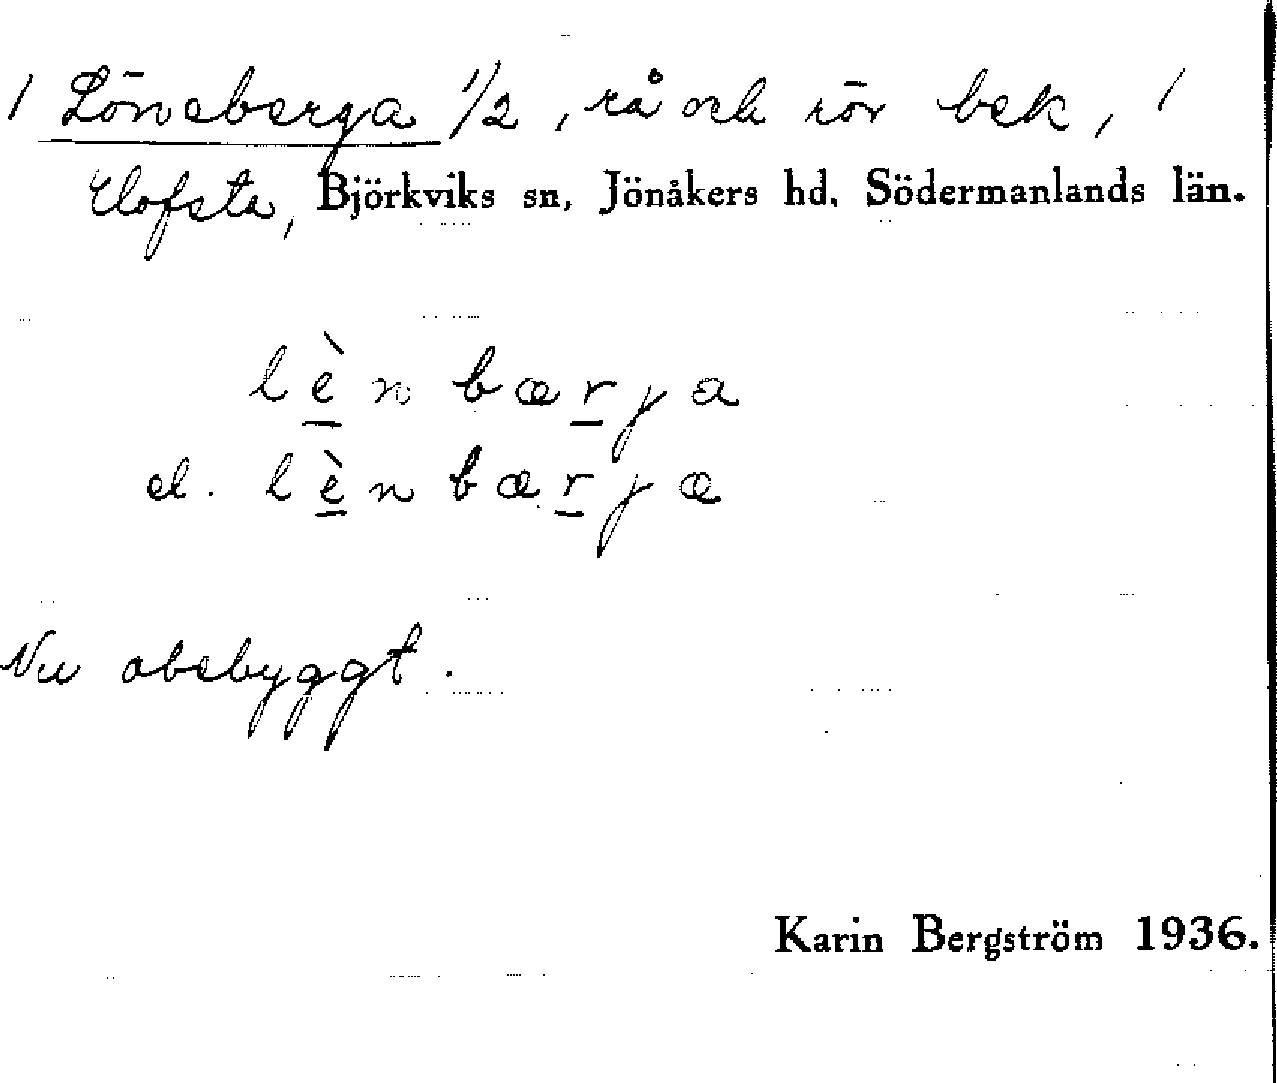 / Löneberga 1/2, rå och rör bek, /
Elofsta, Björkviks sn, Jönåkers hd, Södermanlands län.
lènbærja
el. lènbærjæ
Nu obebyggt.
Karin Bergström 1936.